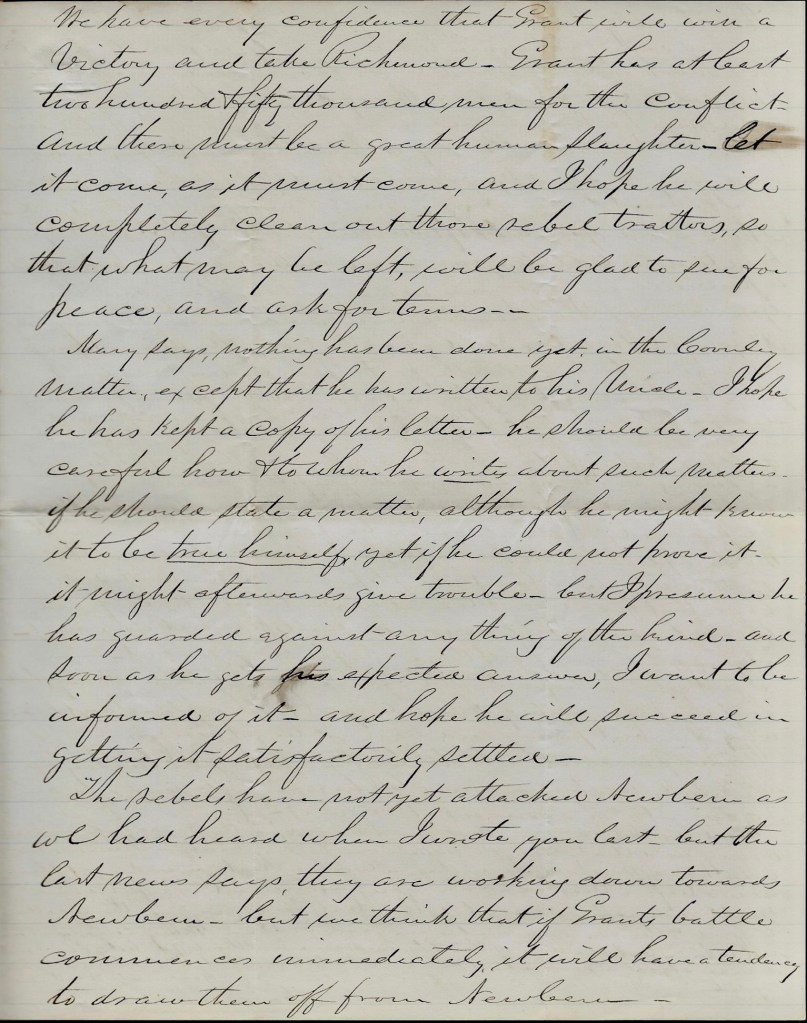 We have every confidence that Grant will win a
Victory and take Richmond - Grant has at least
two hundred & fifty thousand men for the conflict -
and there must be a great human slaughter - let
it come, as it must come, and I hope he will
completely clean out those rebel traitors, so
that what may be left, will be glad to sue for
peace, and ask for terms --
Mary says, nothing has been done yet, in the
matter, except that he has written to his Uncle - I hope
he has kept a copy of his letter - he should be very
careful how & to whom he writes about such matters -
if he should state a matter, although he might know
it to be true himself, yet if he could not prove it -
it might afterwards give trouble - but I presume he
has guarded against any thing of the kind - and
soon as he gets his expected answer, I want to be
informed of it - and hope he will succeed in
getting it satisfactorily settled -
The rebels have not yet attacked Newbern as
we had heard when I wrote you last - but the
last news says, they are working down towards
Newbern - but we think that if Grants battle
commences immediately, it will have a tendency
to draw them off from Newbern -